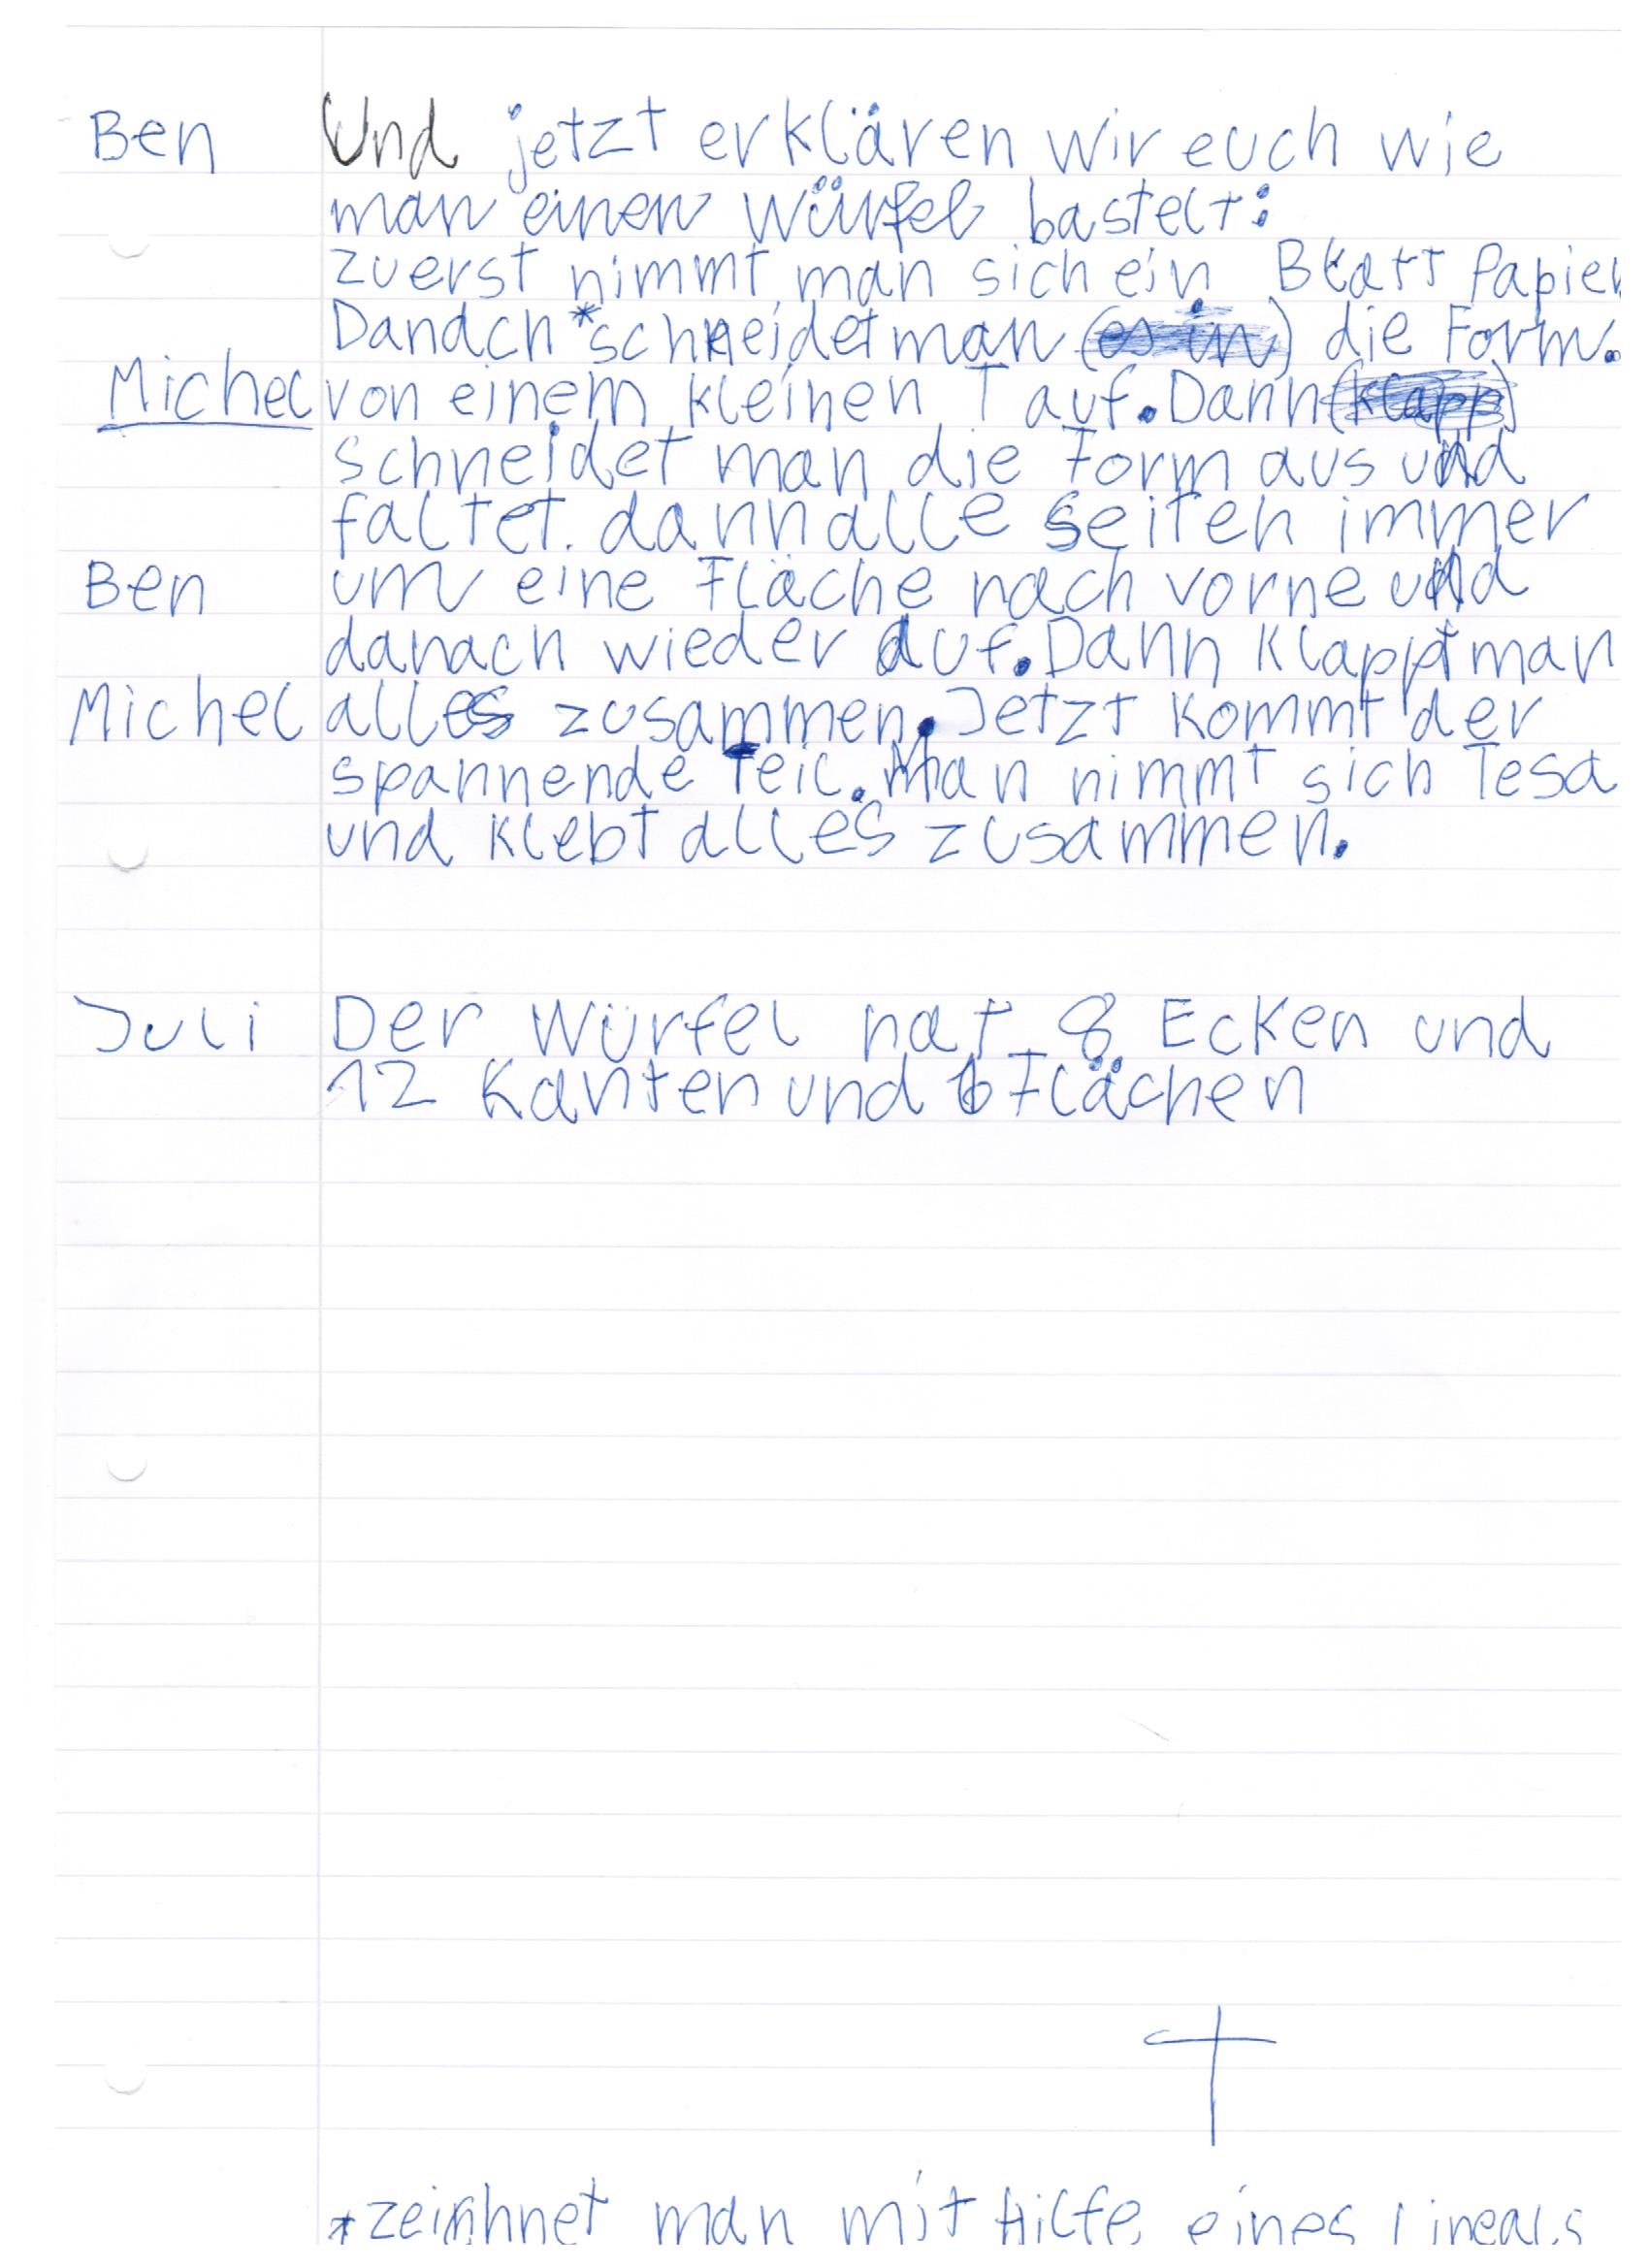 Ben Und jetzt erklären wir euch wie
man einen Würfel bastelt:
zuerst nimmt man sich ein Blatt Papier
Danach *schneidet man (es in) die Form.
Michel von einem kleinen T auf. Dann (klapp)
schneidet man die Form aus und
faltet. dann alle seiten immer
Ben um eine Fläche nach vorne und
danach wieder auf. Dann klappt man
Michel alles zusammen. Jetzt kommt der
spannende Teil. Man nimmt sich Tesa
und klebt alles zusammen.
Juli Der Würfel hat 8 Ecken und
12 Kanten und 6 Flächen
*zeichnet man mit hilfe eines Lineals